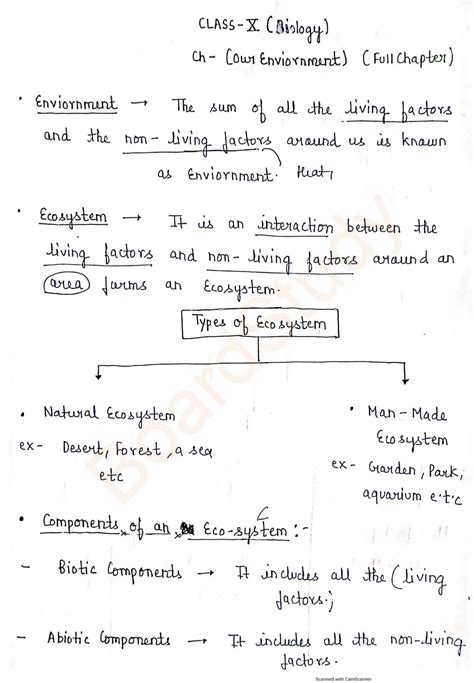 CLASS-X (Biology)
Ch- (Our Enviornment) (Full Chapter)
• Enviornment → The sum of all the living factors
and the non-living factors around us is known
as Enviornment. that,
• Ecosystem → It is an interaction between the
living factors and non-living factors around an
area forms an Ecosystem.
Types of Ecosystem
• Natural Ecosystem
ex- Desert, Forest, a sea
etc
• Man-Made
Ecosystem
ex- Garden, Park,
aquarium e.t.c
• Components of an Eco-system:-
- Biotic Components → It includes all the (living
factors.)
- Abiotic Components → It includes all the non-living
factors.
BoardStudy
Scanned with CamScanner